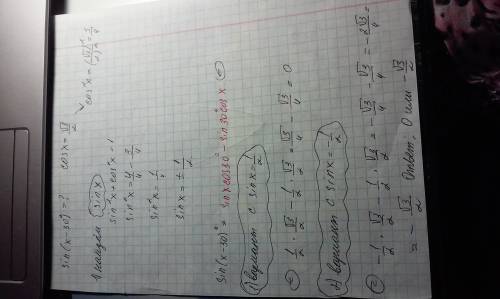 sin(x-30°)=? cos x = √3/2
cos²x = (√3/2)² = 3/4
1) найдем sin x
sin²x + cos²x = 1
sin²x = 4/4 - 3/4
sin²x = 1/4
sin x = ± 1/2
sin(x-30)° = sin x cos 30° - sin 30° cos x =
1) вариант с sin x = 1/2
= 1/2 · √3/2 - 1/2 · √3/2 = √3/4 - √3/4 = 0
2) вариант с sin x = -1/2
= -1/2 · √3/2 - 1/2 · √3/2 = -√3/4 - √3/4 = -2√3/4 =
= -√3/2 Ответ: 0 или -√3/2